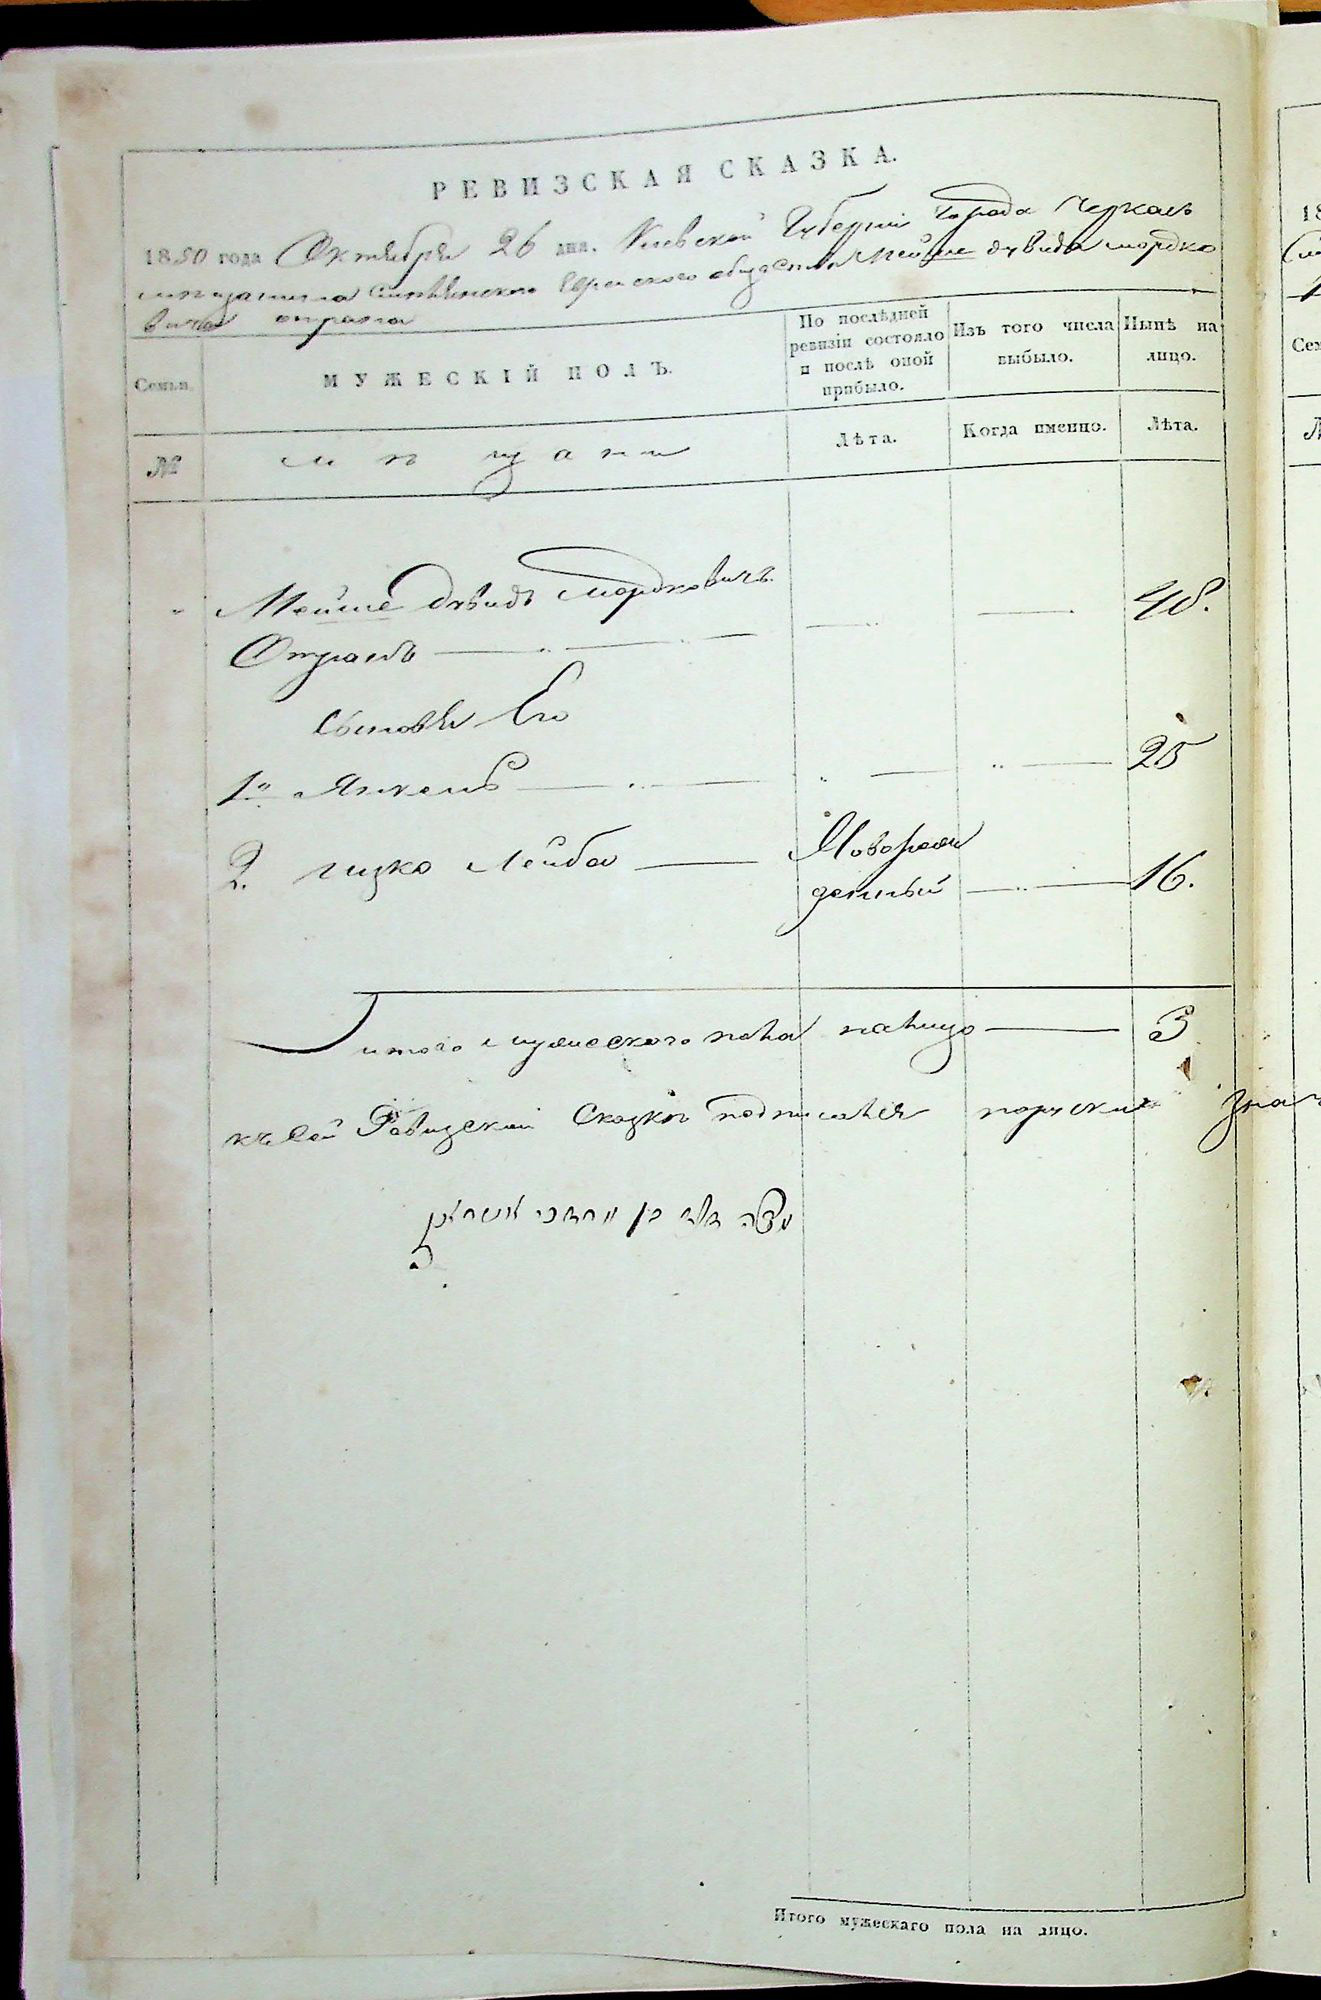 РЕВИЗСКАЯ СКАЗКА.
1850 года Октября 26 дня. Киевской Губерніи города Черкасъ
мещанина Еврейского общества Мейше дувида мордко
вича
Семьи.
МУЖЕСКІЙ ПОЛЪ.
По послѣдней ревизіи состояло и послѣ оной прибыло.
Изъ того числа выбыло.
Нынѣ на лицо.
№
мѣщани
Лѣта.
Когда именно.
Лѣта.
Мейше дувидъ мордковичъ
48.
Сыновья Его
1й Янкель 25
2. Гицко Лейба Новорож
денный 16.
итого мужеского пола налицо 3
къ сей Ревизской Сказкѣ подписался
משה דוד בן מרדכי
Итого мужескаго пола на лицо.